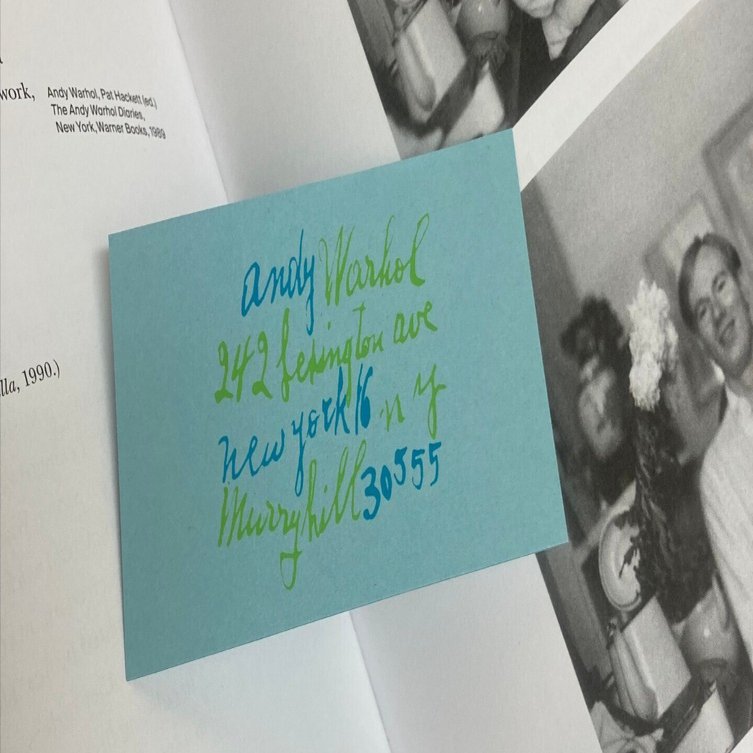 work,
Andy Warhol, Pat Hackett (ed.)
The Andy Warhol Diaries,
New York, Warner Books, 1989
lla, 1990.)
andy Warhol
242 lexington ave
new york 16 n y
Murryhill 30555